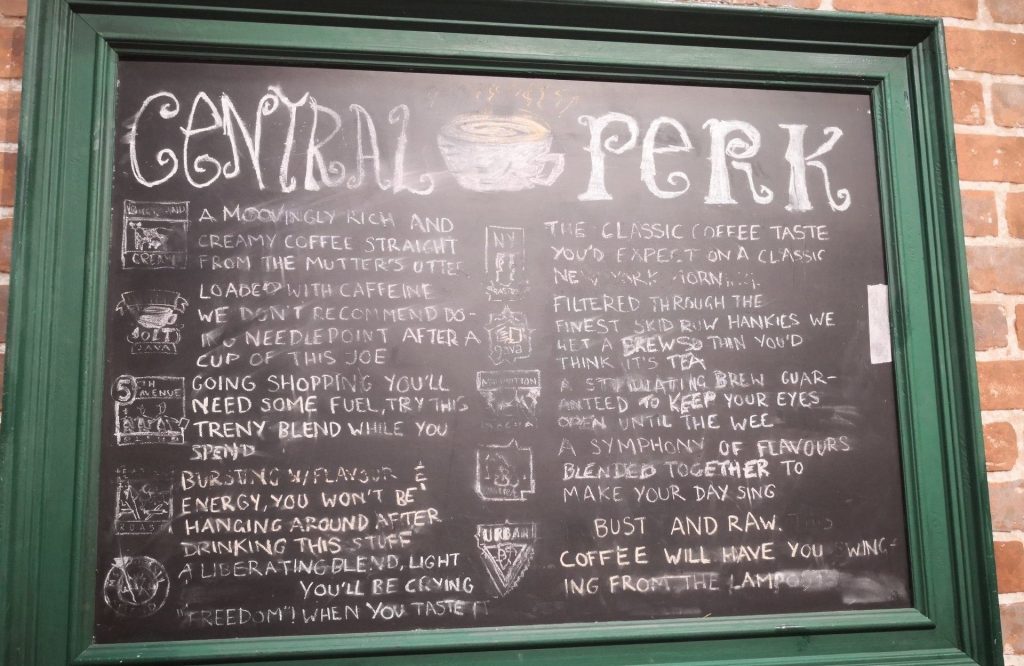 CENTRAL PERK
CREAM
A MOOVINGLY RICH AND
CREAMY COFFEE STRAIGHT
FROM THE MUTTER'S UTTE
JOLT
JAVA
LOADED WITH CAFFEINE
WE DON'T RECOMMEND DO-
NEEDLEPOINT AFTER A
CUP OF THIS JOE
5TH
AVENUE
GOING SHOPPING YOU'LL
NEED SOME FUEL, TRY THIS
TRENY BLEND WHILE YOU
SPEND
ROAST
BURSTING W/FLAVOUR &
ENERGY, YOU WON'T BE
HANGING AROUND AFTER
DRINKING THIS STUFF
A LIBERATING BLEND, LIGHT
YOU'LL BE CRYING
"FREEDOM"! WHEN YOU TASTE IT
NY
THE CLASSIC COFFEE TASTE
YOU'D EXPECT ON A CLASSIC
NEW YORK MORNING
JAVA
FILTERED THROUGH THE
FINEST SKID ROW HANKIES WE
HET A BREW SO THIN YOU'D
THINK IT'S TEA
A BREW GUAR-
ANTEED TO KEEP YOUR EYES
OPEN UNTIL THE WEE
A SYMPHONY OF FLAVOURS
BLENDED TOGETHER TO
MAKE YOUR DAY SING
URBAN
BUST AND RAW. THIS
COFFEE WILL HAVE YOU SWING-
ING FROM THE LAMPOST